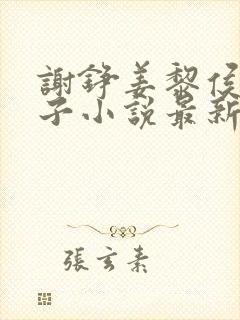 謝錚姜黎侯
子小說最新
張玄素